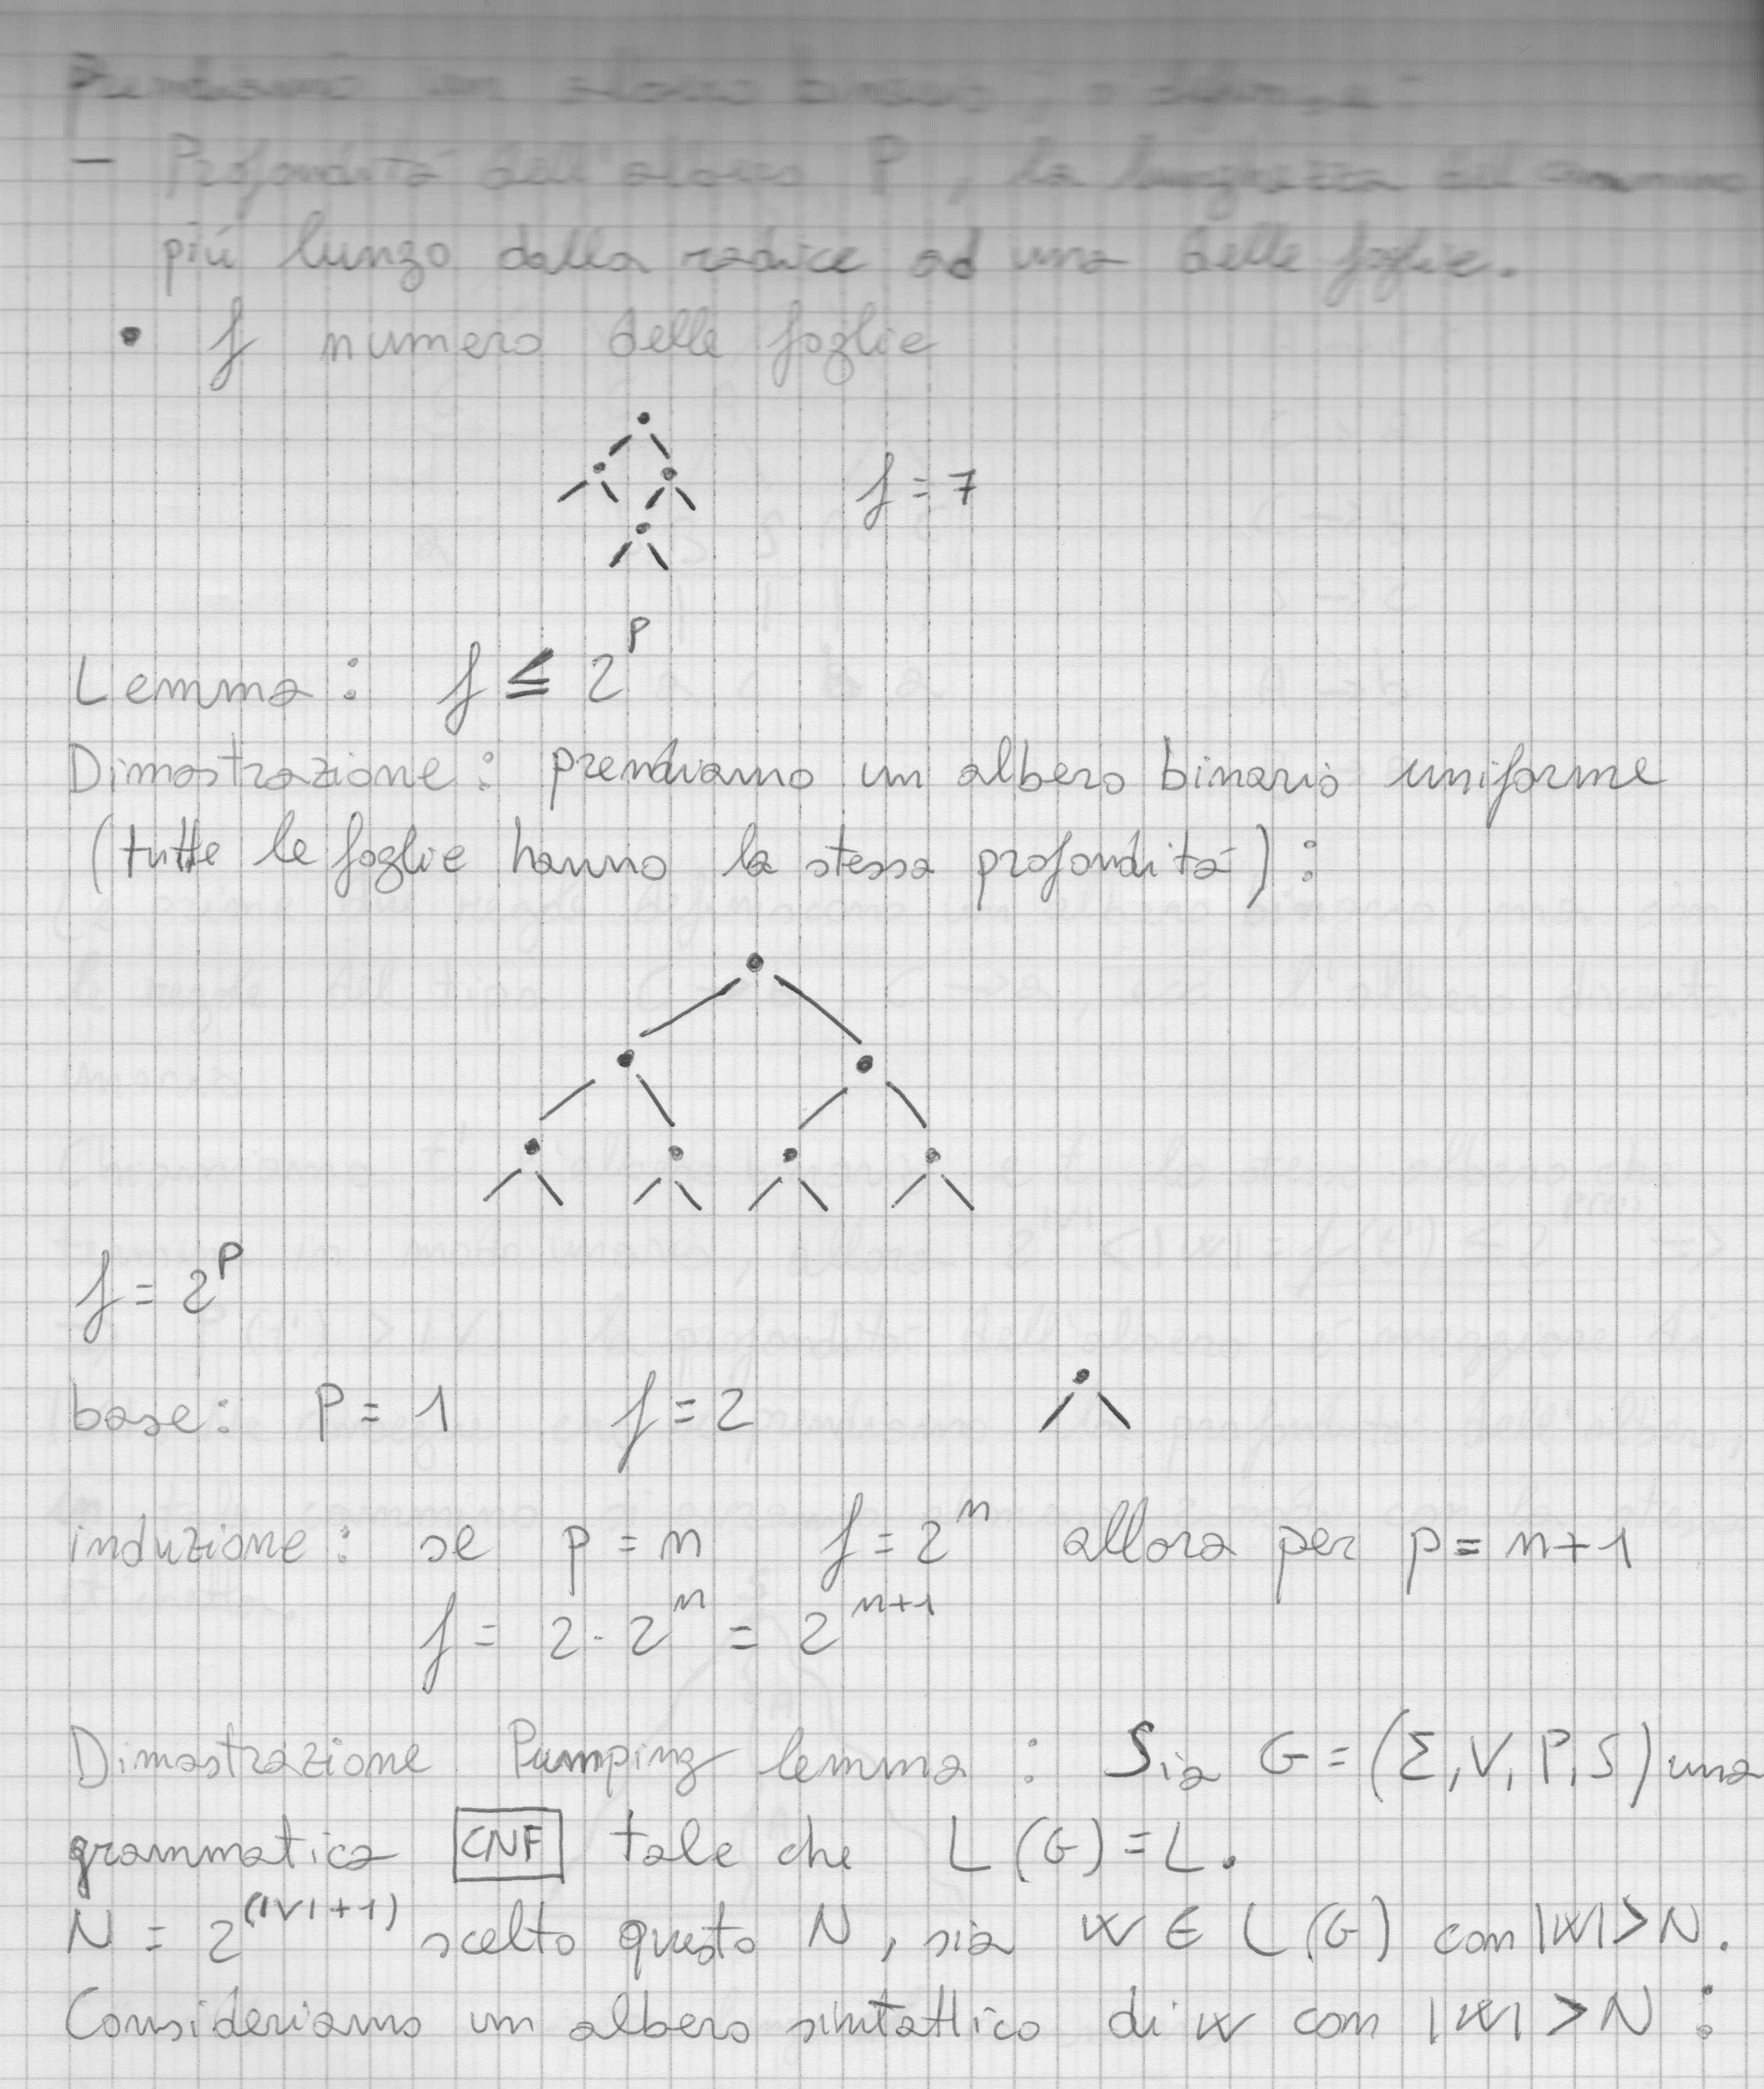 Prendiamo un albero binario, e
- Profondità dell'albero P, la lunghezza del cammino
più lungo dalla radice ad una delle foglie.
• f numero delle foglie
f = 7
Lemma: f ≤ 2^P
Dimostrazione: prendiamo un albero binario uniforme
(tutte le foglie hanno la stessa profondità):
f = 2^P
base: P = 1 f = 2
induzione: se p = n f = 2^n allora per p = n+1
f = 2 · 2^n = 2^{n+1}
Dimostrazione Pumping lemma: Sia G = (Σ, V, P, S) una
grammatica CNF tale che L(G) = L.
N = 2^{(|V|+1)} scelto questo N, sia w ∈ L(G) con |w| > N.
Consideriamo un albero sintattico di w con |w| > N: